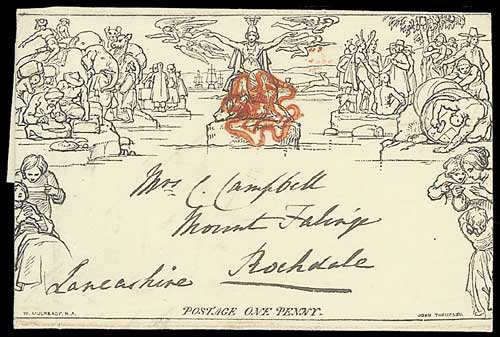 Mrs C. Campbell
Mount Falinge
Rochdale
Lancashire
POSTAGE ONE PENNY.
W. MULREADY. R.A.
JOHN THOMPSON.